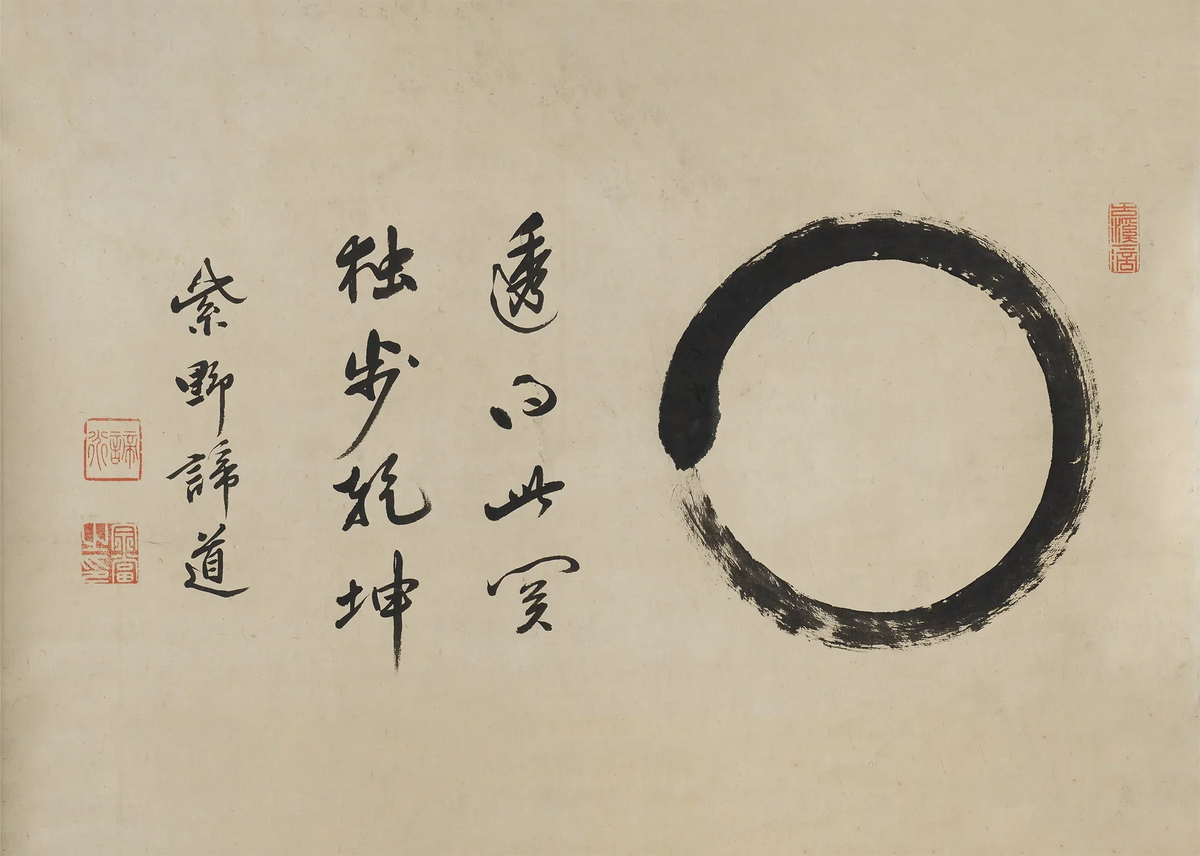 透向此関
独歩乾坤
紫野諦道